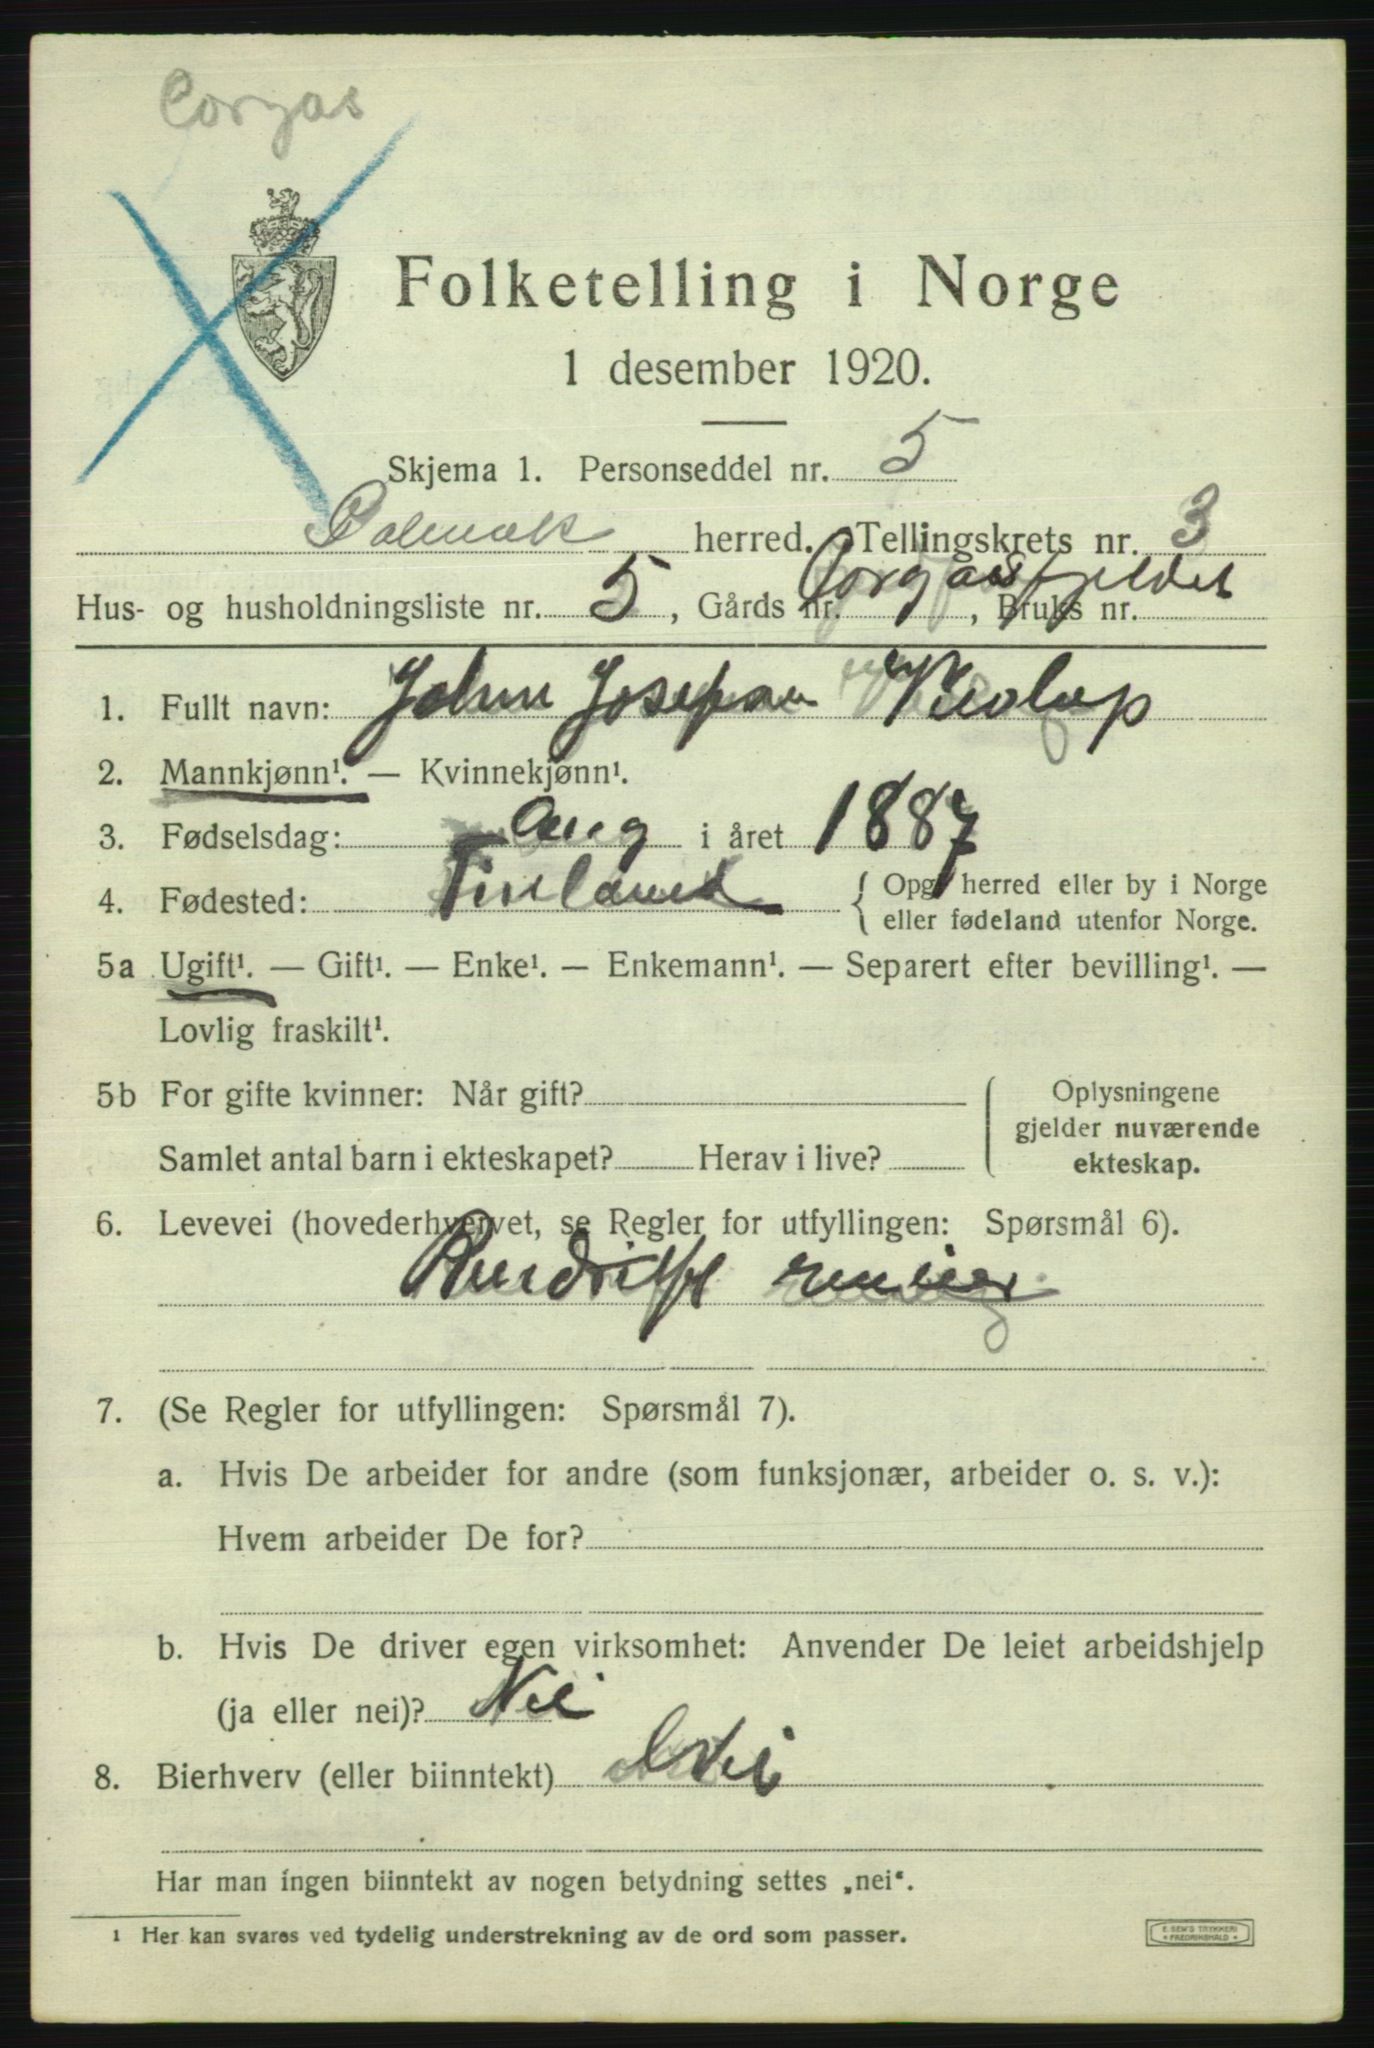 Corgas
Folketelling i Norge
1 desember 1920.
Skjema 1. Personseddel nr. 5
Polmak herred. Tellingskrets nr. 3
Hus- og husholdningsliste nr. 5, Gårds nr. Corgasfjeldet, Bruks nr.
1. Fullt navn: John Josefsen
2. Mannkjønn¹. — Kvinnekjønn¹.
3. Fødselsdag: Aug i året 1887
4. Fødested: Finland { Opg. herred eller by i Norge
eller fødeland utenfor Norge.
5a Ugift¹. — Gift¹. — Enke¹. — Enkemann¹. — Separert efter bevilling¹. —
Lovlig fraskilt¹.
5b For gifte kvinner: Når gift? { Oplysningene
gjelder nuværende
Samlet antal barn i ekteskapet? Herav i live? ekteskap.
6. Levevei (hovederhvervet, se Regler for utfyllingen: Spørsmål 6).
Rendrifts
7. (Se Regler for utfyllingen: Spørsmål 7).
a. Hvis De arbeider for andre (som funksjonær, arbeider o. s. v.):
Hvem arbeider De for?
b. Hvis De driver egen virksomhet: Anvender De leiet arbeidshjelp
(ja eller nei)? Nei
8. Bierhverv (eller biinntekt) Nei
Har man ingen biinntekt av nogen betydning settes „nei“.
¹ Her kan svares ved tydelig understrekning av de ord som passer.
E. SEM'S TRYKKERI
* FREDRIKSHALD *